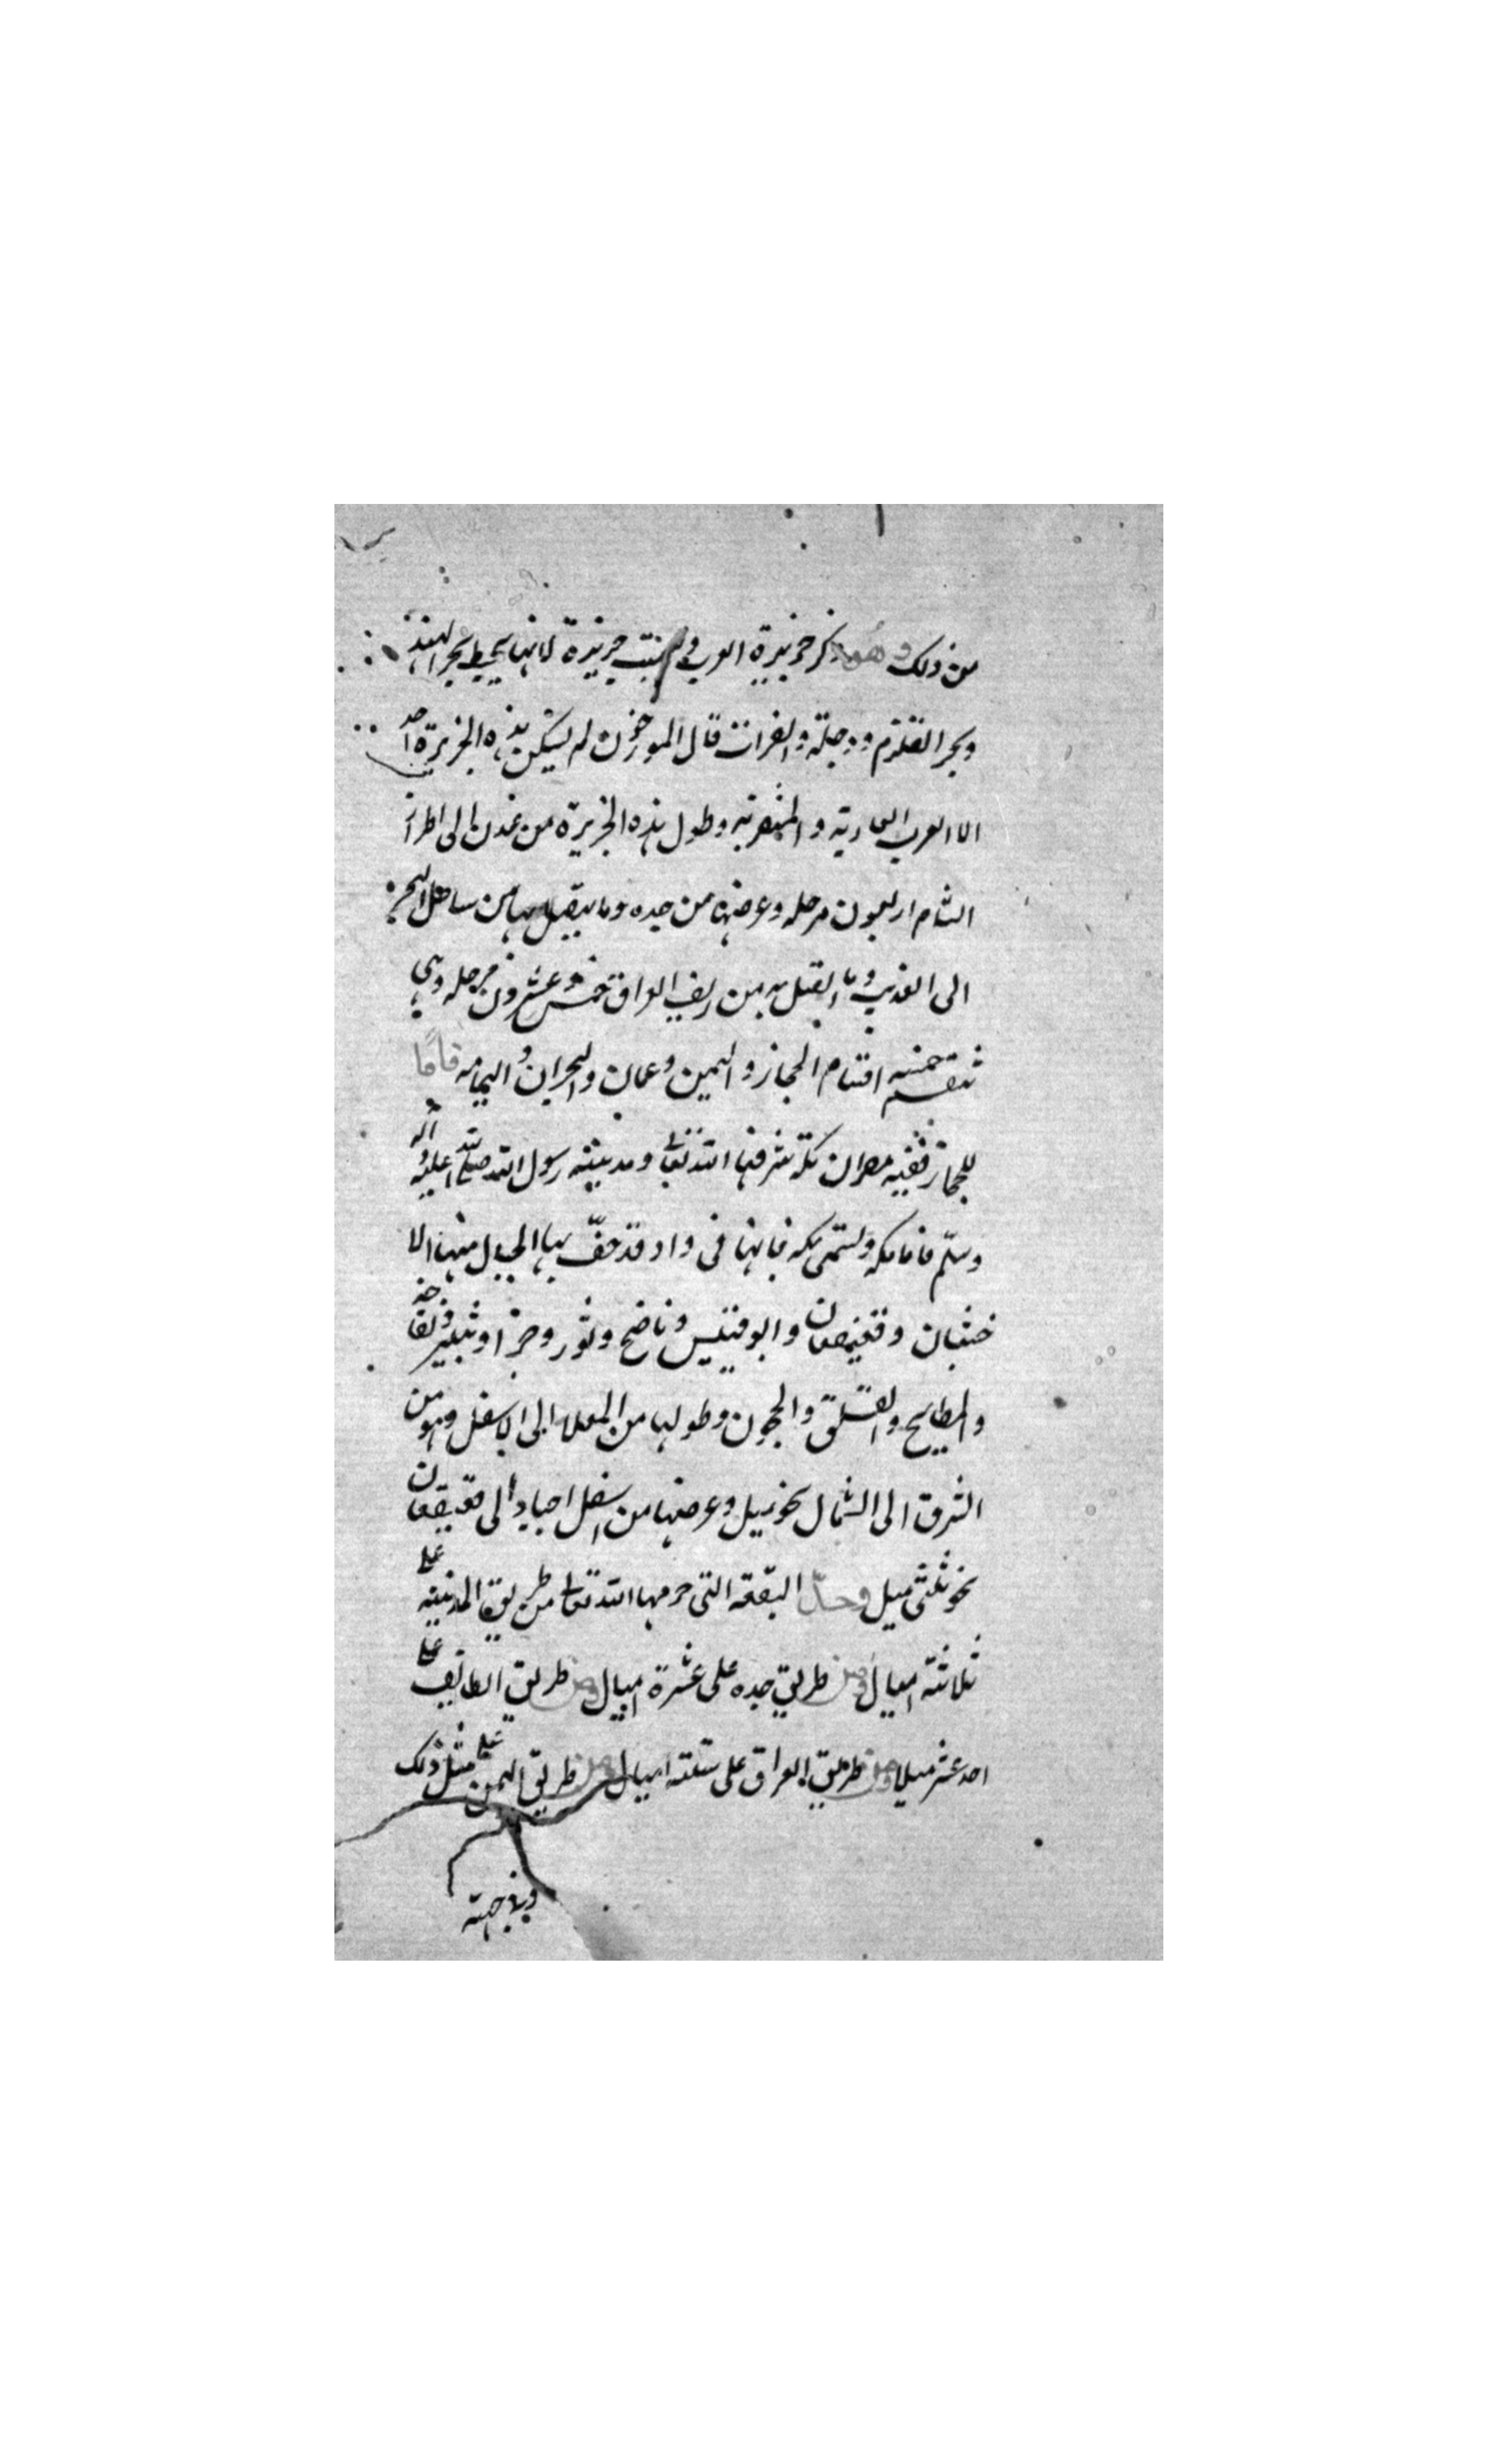 من ذلك وهو ذكر جزيرة العرب ولم سميت جزيرة لانها يحيط بها بحر الهند
وبحر القلزم ودجلة والفرات قال المورخون لم يسكن هذه الجزيرة احد
الا العرب العاربة والمتعربة وطول هذه الجزيرة من عدن الى اطراف
الشام اربعون مرحله وعرضها من جده وما يتصل بها من ساحل البحر
الى العذيب وما اتصل به من ريف العراق خمس وعشرون مرحله وهى
تنقسم خمسه اقسام الحجاز واليمن وعمان والبحران واليمامه فاما
الحجاز ففيه مصران مكة شرفها الله تعالى ومدينة رسول الله صلى الله عليه وآله
وسلم فاما مكه وتسمى بكه فانها فى واد قد حفّ بها الجبال منها الا
خشبان وقعيقعان وابو قبيس وناضح وثور وحرا وثبير وتفاحه
والمطابخ والفلق والحجون وطولها من المعلا الى الاسفل وهو من
الشرق الى الشمال نحو ميل وعرضها من اسفل اجياد الى قعيقعان
نحو ثلثى ميل وحدّ البقعه التى حرمها الله تعالى من طريق المدينة على
ثلاثة اميال ومن طريق جده على عشرة اميال ومن طريق الطائف على
احد عشر ميلا ومن طريق العراق على ستة اميال ومن طريق اليمن على مثل ذلك